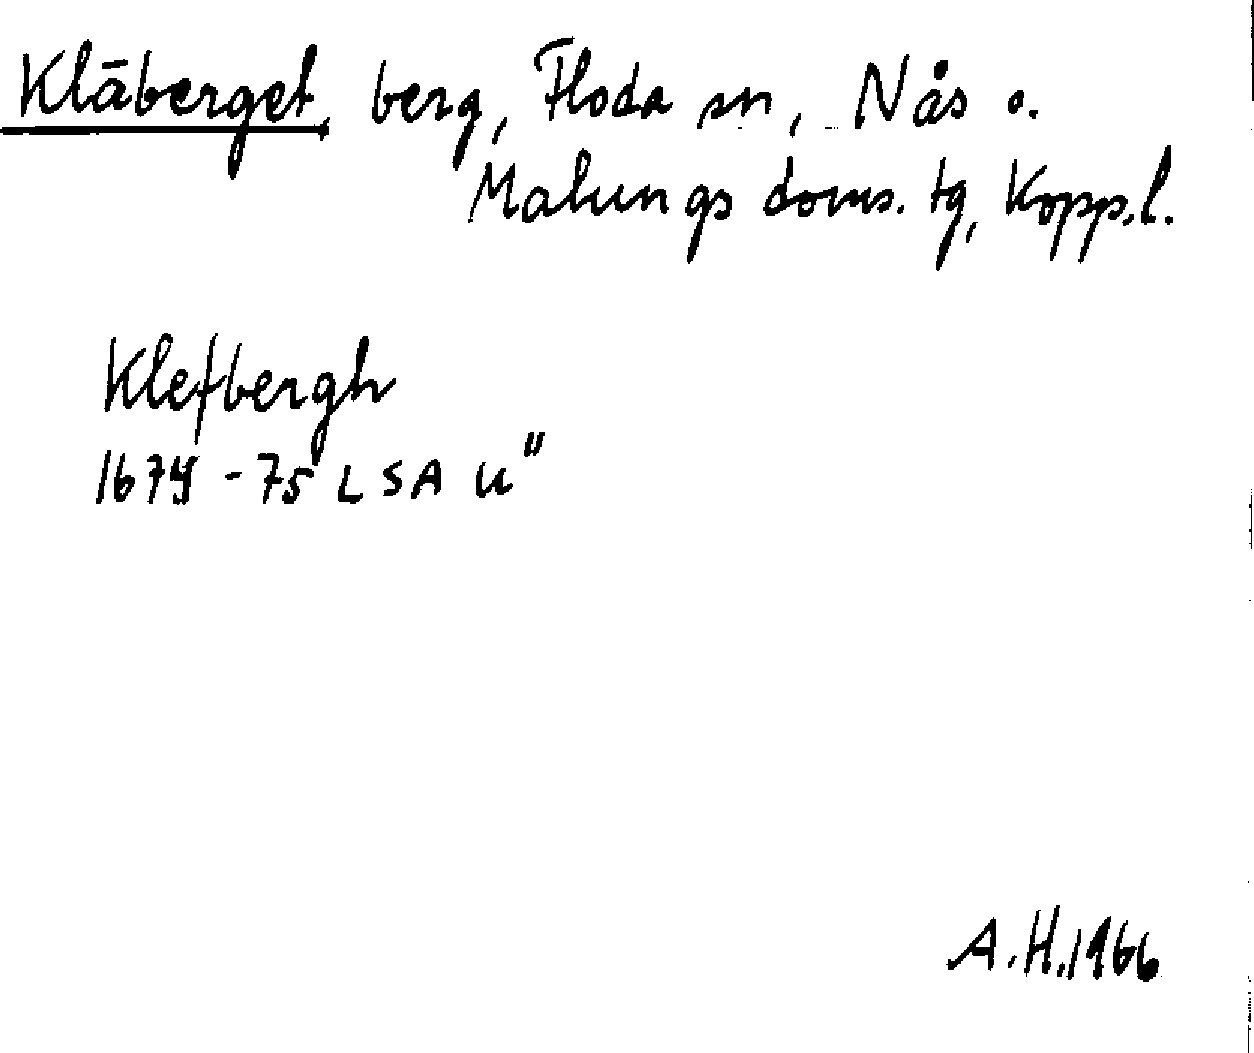 Kläberget, berg, Floda sn, Nås o.
Malungs doms. tg, Kopp.l.
Klefbergh
1674-75 LSA u"
A.H.1966